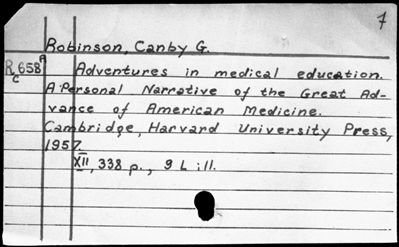 7
Robinson, Canby G.
A
R 658 Adventures in medical education.
C
A Personal Narrative of the Great Ad-
vance of American Medicine.
Cambridge, Harvard University Press,
1957.
XII, 338 p., 9 L ill.